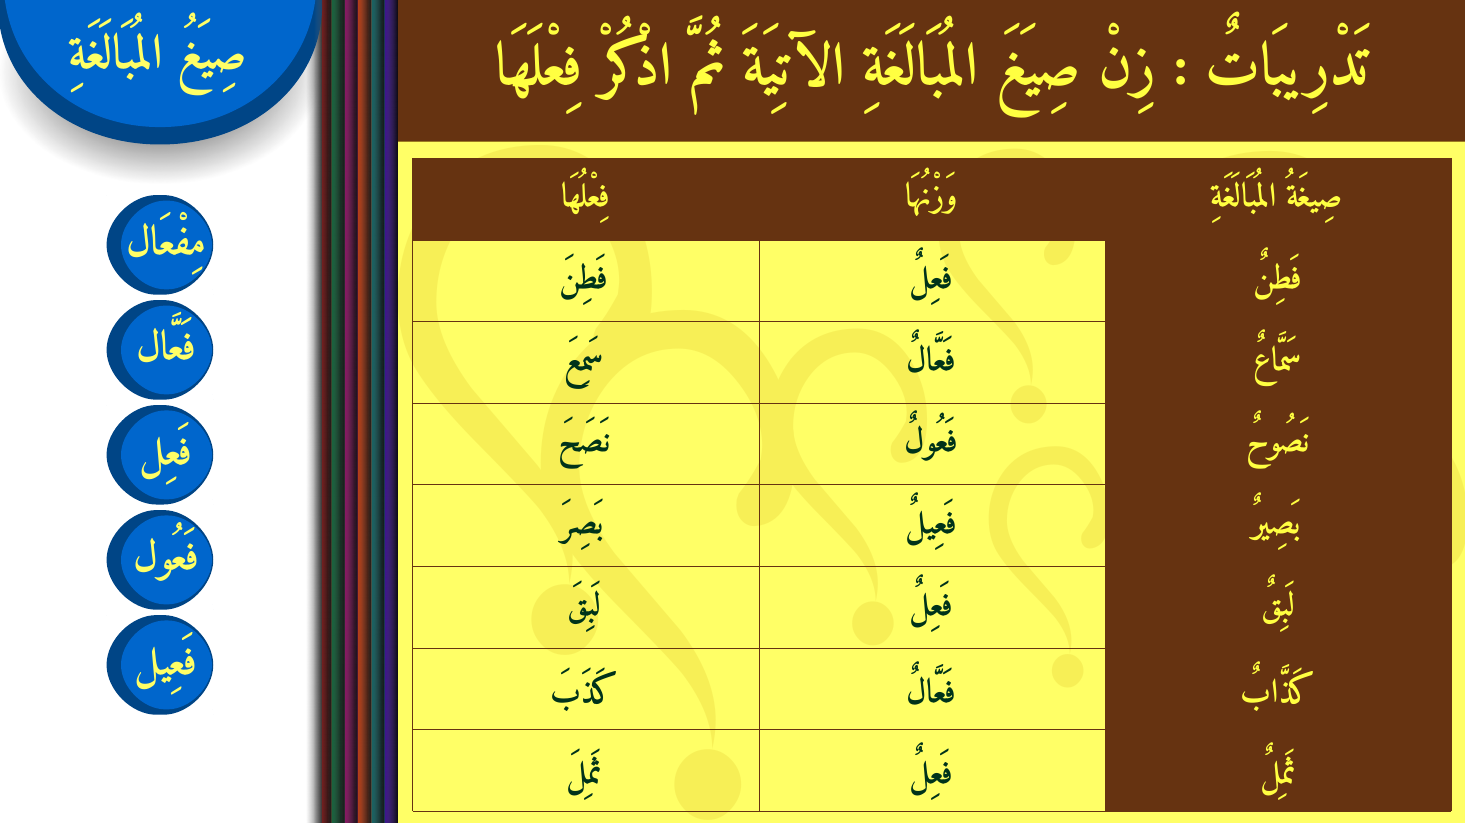 تَدْرِيبَاتٌ : زِنْ صِيَغَ المُبَالَغَةِ الآتِيَةَ ثُمَّ اذْكُرْ فِعْلَهَا
صِيَغُ المُبَالَغَةِ
مِفْعَال
فَعَّال
فَعِل
فَعُول
فَعِيل
صِيغَةُ المُبَالَغَةِ وَزْنُهَا فِعْلُهَا
فَطِنٌ فَعِلٌ فَطِنَ
سَمَّاعٌ فَعَّالٌ سَمِعَ
نَصُوحٌ فَعُولٌ نَصَحَ
بَصِيرٌ فَعِيلٌ بَصِرَ
لَبِقٌ فَعِلٌ لَبِقَ
كَذَّابٌ فَعَّالٌ كَذَبَ
ثَمِلٌ فَعِلٌ ثَمِلَ